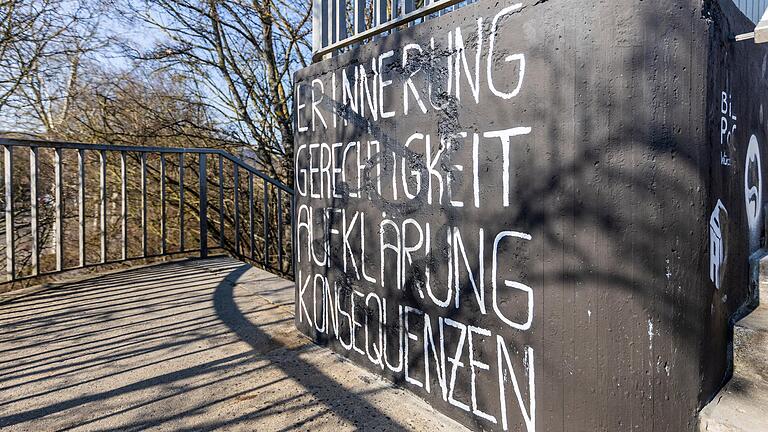 ERINNERUNG
GERECHTIGKEIT
AUFKLÄRUNG
KONSEQUENZEN